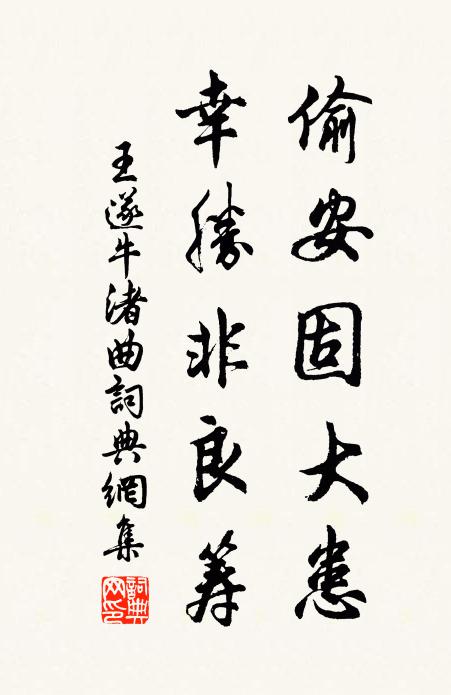 偷安固大患
幸勝非良筹
王遂牛渚曲詞典網集
詞典网印